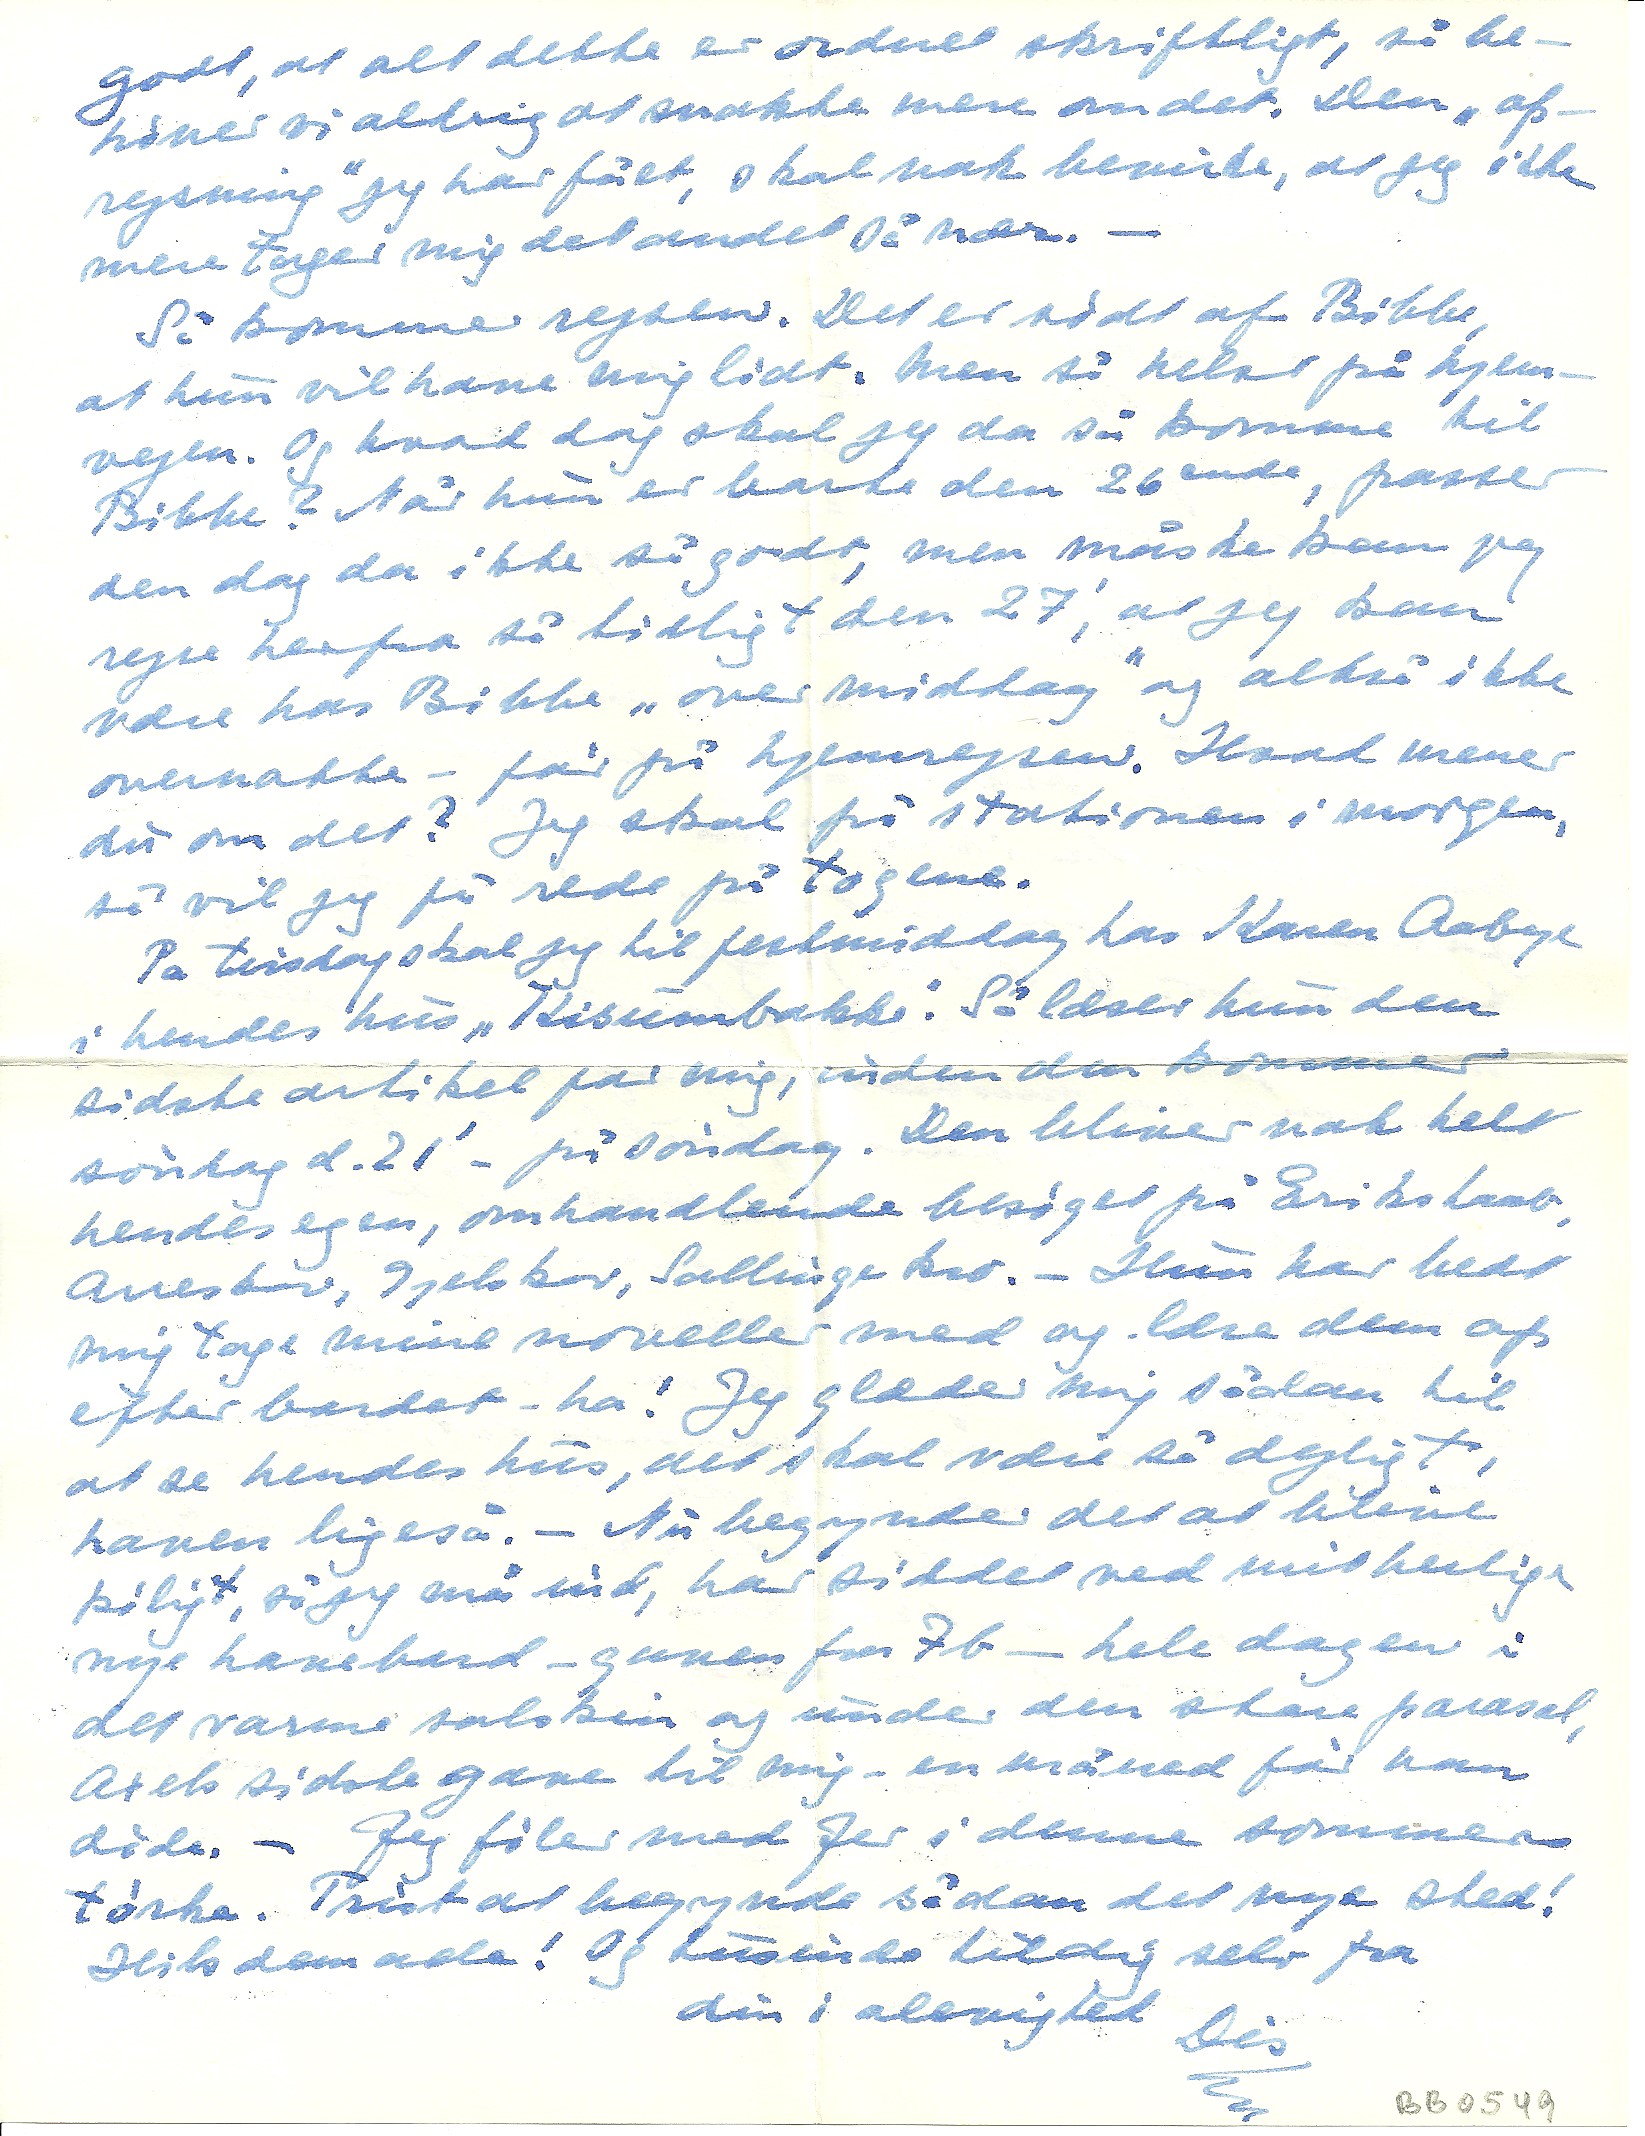 godt, at alt dette er ordnet skriftligt, så be-
höver vi aldrig at snakke mere om det. Den „op-
rejsning" jeg har fået, skal nok bevirke, at jeg ikke
mere tager mig det andet så nær. —
Så kommer rejsen. Det er södt af Bibbe,
at hun vil have mig lidt. Men så helst på hjem-
vejen. Og hvad dag skal jeg da så komme til
Bibbe? Når hun er borte den 26ende, passer
den dag da ikke så godt, men måske kan jeg
rejse herfra så tidligt den 27', at jeg kan
være hos Bibbe „over middag" og altså ikke
overnatte – för på hjemrejsen. Hvad mener
du om det? Jeg skal på stationen i morgen,
så vil jeg få rede på togene.
På tirsdag skal jeg til festmiddag hos Karen Aabye
i hendes hus „Kisumbakke". Så læser hun den
sidste artikel for mig, inden den kommer
söndag d. 21' – på söndag. Den bliver nok helt
hendes egen, omhandlende besöget på Erikshaab,
Arreskov, Gjelskov, Sallinge kro. – Hun har bedt
mig tage mine noveller med og læse dem op
efter bordet – ha! Jeg glæder mig sådan til
at se hendes hus, det skal være så dejligt,
haven ligeså. – Nu begynder det at blive
köligt, så jeg må ind, har siddet ved mit herlige
nye havebord – gaven fra 7b — hele dagen i
det varme solskin og under den store parasol,
Axels sidste gave til mig – en måned för han
döde. – Jeg föler med Jer i denne sommer-
törke. Trist at begynde sådan det nye sted!
Hils dem alle! Og tusinde til dig selv fra
din i al evighed
Dis
BB0549